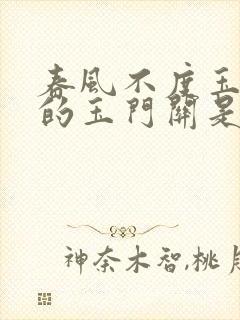 春風不度玉
的玉門關是
神奈木智,桃